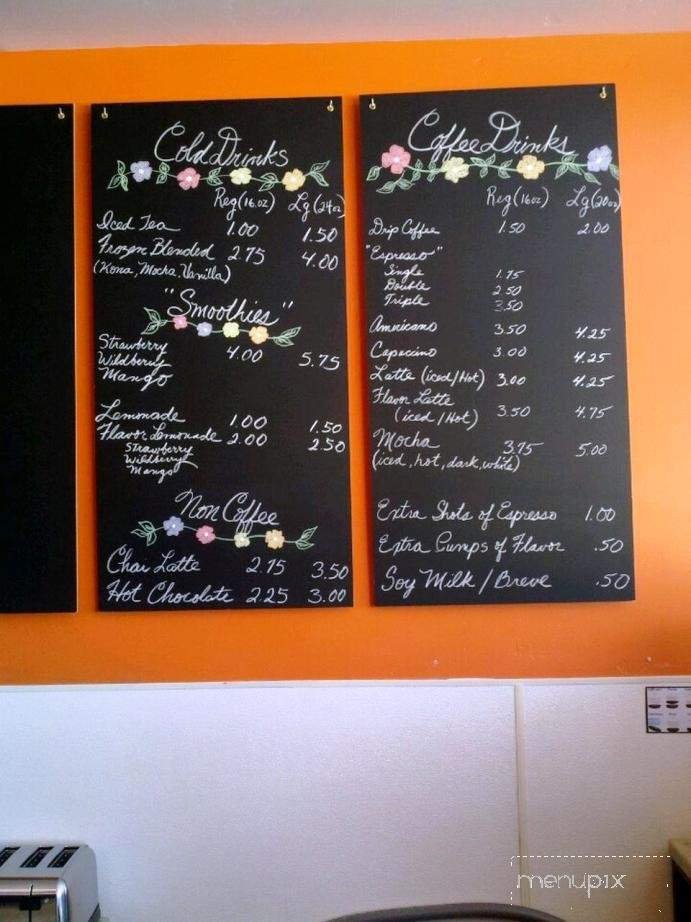 Cold Drinks
Reg (16oz) Lg (24oz)
Iced Tea 1.00 1.50
Frozen Blended 2.75 4.00
(Kona, Mocha, Vanilla)
"Smoothies"
Strawberry
Wildberry 4.00 5.75
Mango
Lemonade 1.00 1.50
Flavor Lemonade 2.00 2.50
Strawberry
Wildberry
Mango
Non Coffee
Chai Latte 2.75 3.50
Hot Chocolate 2.25 3.00
Coffee Drinks
Reg (16oz) Lg (20oz)
Drip Coffee 1.50 2.00
"Espresso"
Single 1.75
Double 2.50
Triple 3.50
Americano 3.50 4.25
Capaccino 3.00 4.25
Latte (iced/Hot) 3.00 4.25
Flavor Latte
(iced/Hot) 3.50 4.75
Mocha 3.75 5.00
(iced, hot, dark, white)
Extra Shots of Espresso 1.00
Extra Pumps of Flavor .50
Soy Milk / Breve .50
menupix